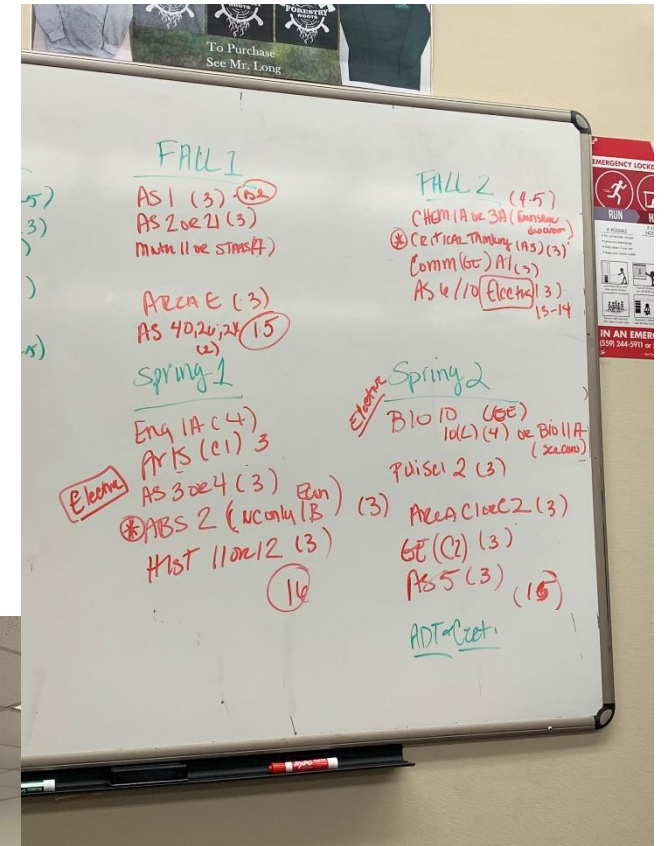 FORESTRY
ROOTS
To Purchase
See Mr. Long
FALL 1
AS 1 (3)
AS 2 or 21 (3)
Math 11 or STATS (4)
AREA E (3)
AS 40, 26, 24 15
(2)
Spring 1
Eng 1A (4)
Arts (C1) 3
Elective
AS 3 or 4 (3)
ABS 2 (NC only 1B) (3)
HIST 11 or 12 (3)
16
5)
3)
)
)
FALL 2 (4-5)
CHEM 1A or 3A
CRITICAL Thinking (A3) (3)
Comm (GE) A1 (3)
AS 6/10 Elective (3)
13-14
Spring 2
Elective
BIO 10 (GE)
10(L) (4) or Bio 11A
Polsci 2 (3)
AREA C1 or C2 (3)
GE (C2) (3)
AS 5 (3)
ADT & Cert.
EMERGENCY LOCKD
RUN
H
IN AN EMER
(559) 244-5911 or
EXPO